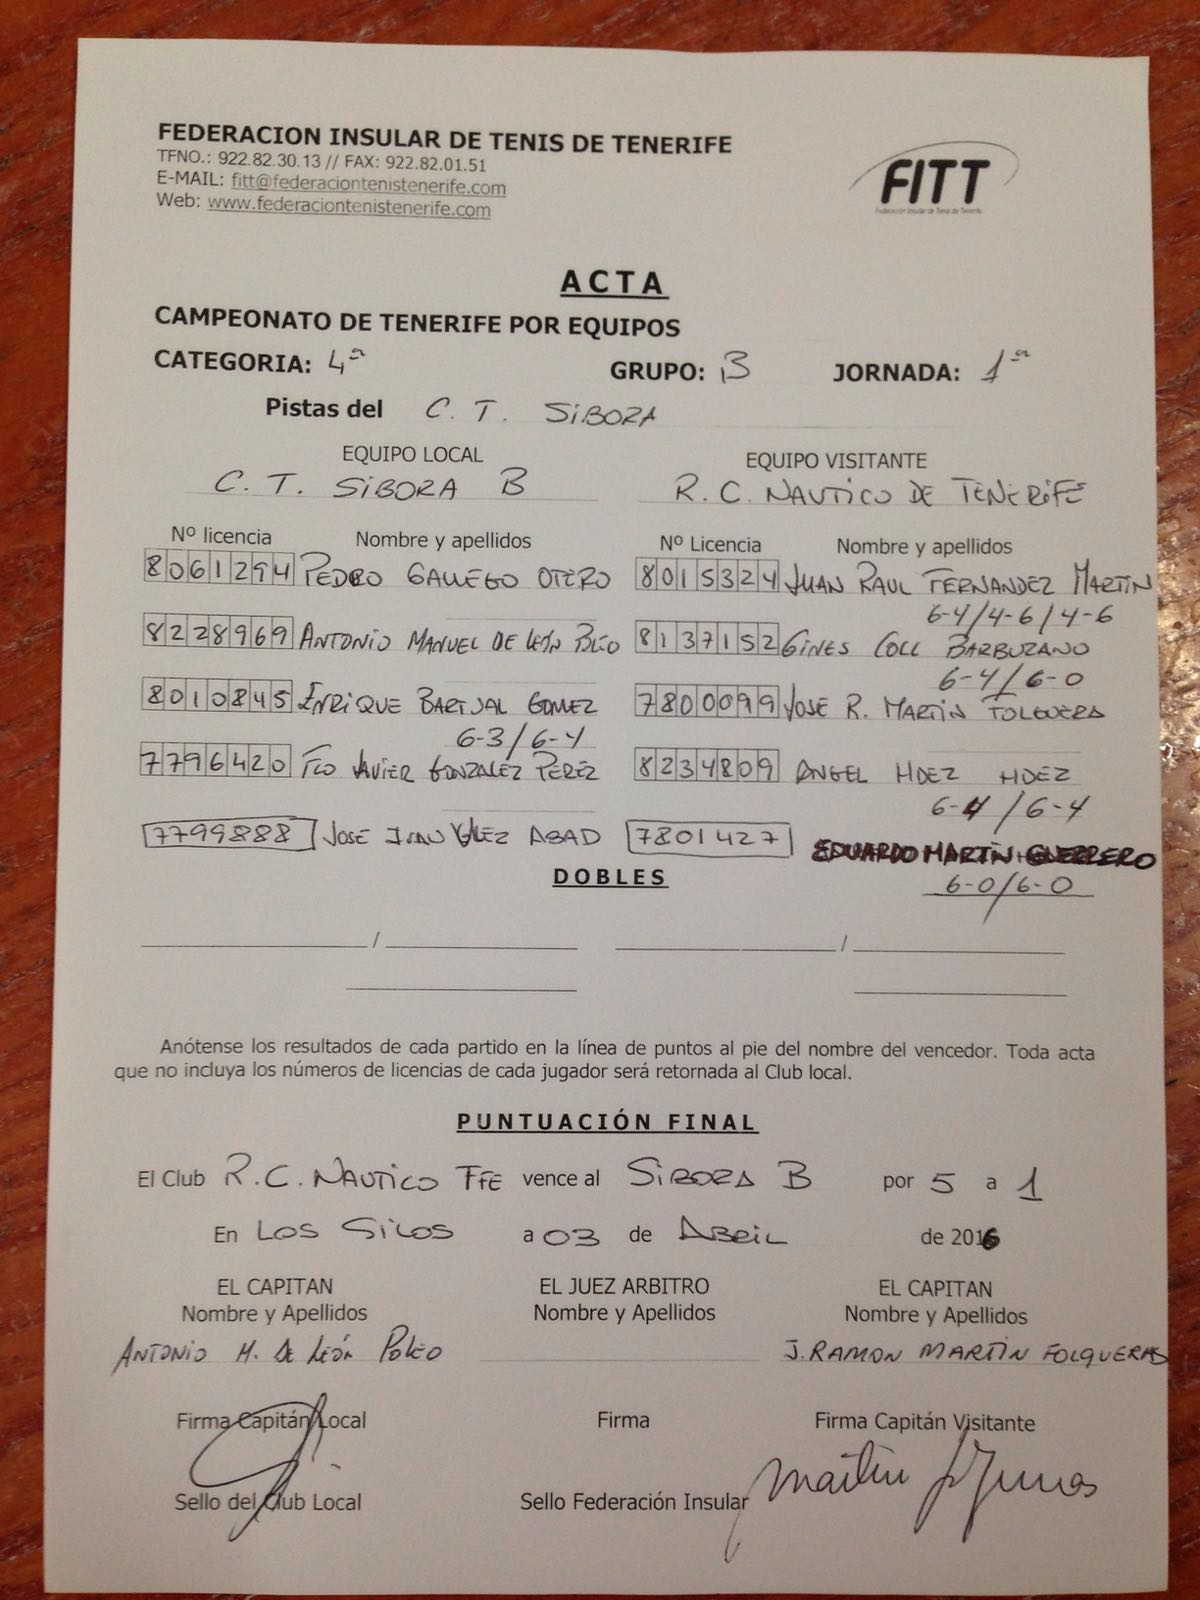 FEDERACION INSULAR DE TENIS DE TENERIFE
TFNO.: 922.82.30.13 // FAX: 922.82.01.51
E-MAIL: fitt@federaciontenistenerife.com
Web: www.federaciontenistenerife.com
FITT
Federación Insular de Tenis de Tenerife
ACTA
CAMPEONATO DE TENERIFE POR EQUIPOS
CATEGORIA: 4ª GRUPO: B JORNADA: 1ª
Pistas del C. T. SIBORA
EQUIPO LOCAL EQUIPO VISITANTE
C. T. SIBORA B R. C. NAUTICO DE TENERIFE
Nº licencia Nombre y apellidos Nº Licencia Nombre y apellidos
8061294 PEDRO GALLEGO OTERO 8015324 JUAN RAUL FERNANDEZ MARTIN
6-4/4-6/4-6
8228969 ANTONIO MANUEL DE LEÓN POLEO 8137152 GINES COLL BARBUZANO
6-4/6-0
8010845 ENRIQUE GOMEZ 7800099 JOSE R. MARTIN FOLGUERA
6-3/6-4
7796420 FCO JAVIER GONZALEZ PEREZ 8234809 ANGEL HDEZ HDEZ
6-4/6-4
7799888 JOSE JUAN ABAD 7801427 EDUARDO MARTIN GUERRERO
DOBLES 6-0/6-0
/ /
Anótense los resultados de cada partido en la línea de puntos al pie del nombre del vencedor. Toda acta
que no incluya los números de licencias de cada jugador será retornada al Club local.
PUNTUACIÓN FINAL
El Club R.C. NAUTICO TFE vence al SIBORA B por 5 a 1
En LOS SILOS a 03 de ABRIL de 2016
EL CAPITAN EL JUEZ ARBITRO EL CAPITAN
Nombre y Apellidos Nombre y Apellidos Nombre y Apellidos
ANTONIO M. DE LEÓN POLEO J. RAMON MARTIN FOLGUERAS
Firma Capitán Local Firma Firma Capitán Visitante
Sello del Club Local Sello Federación Insular